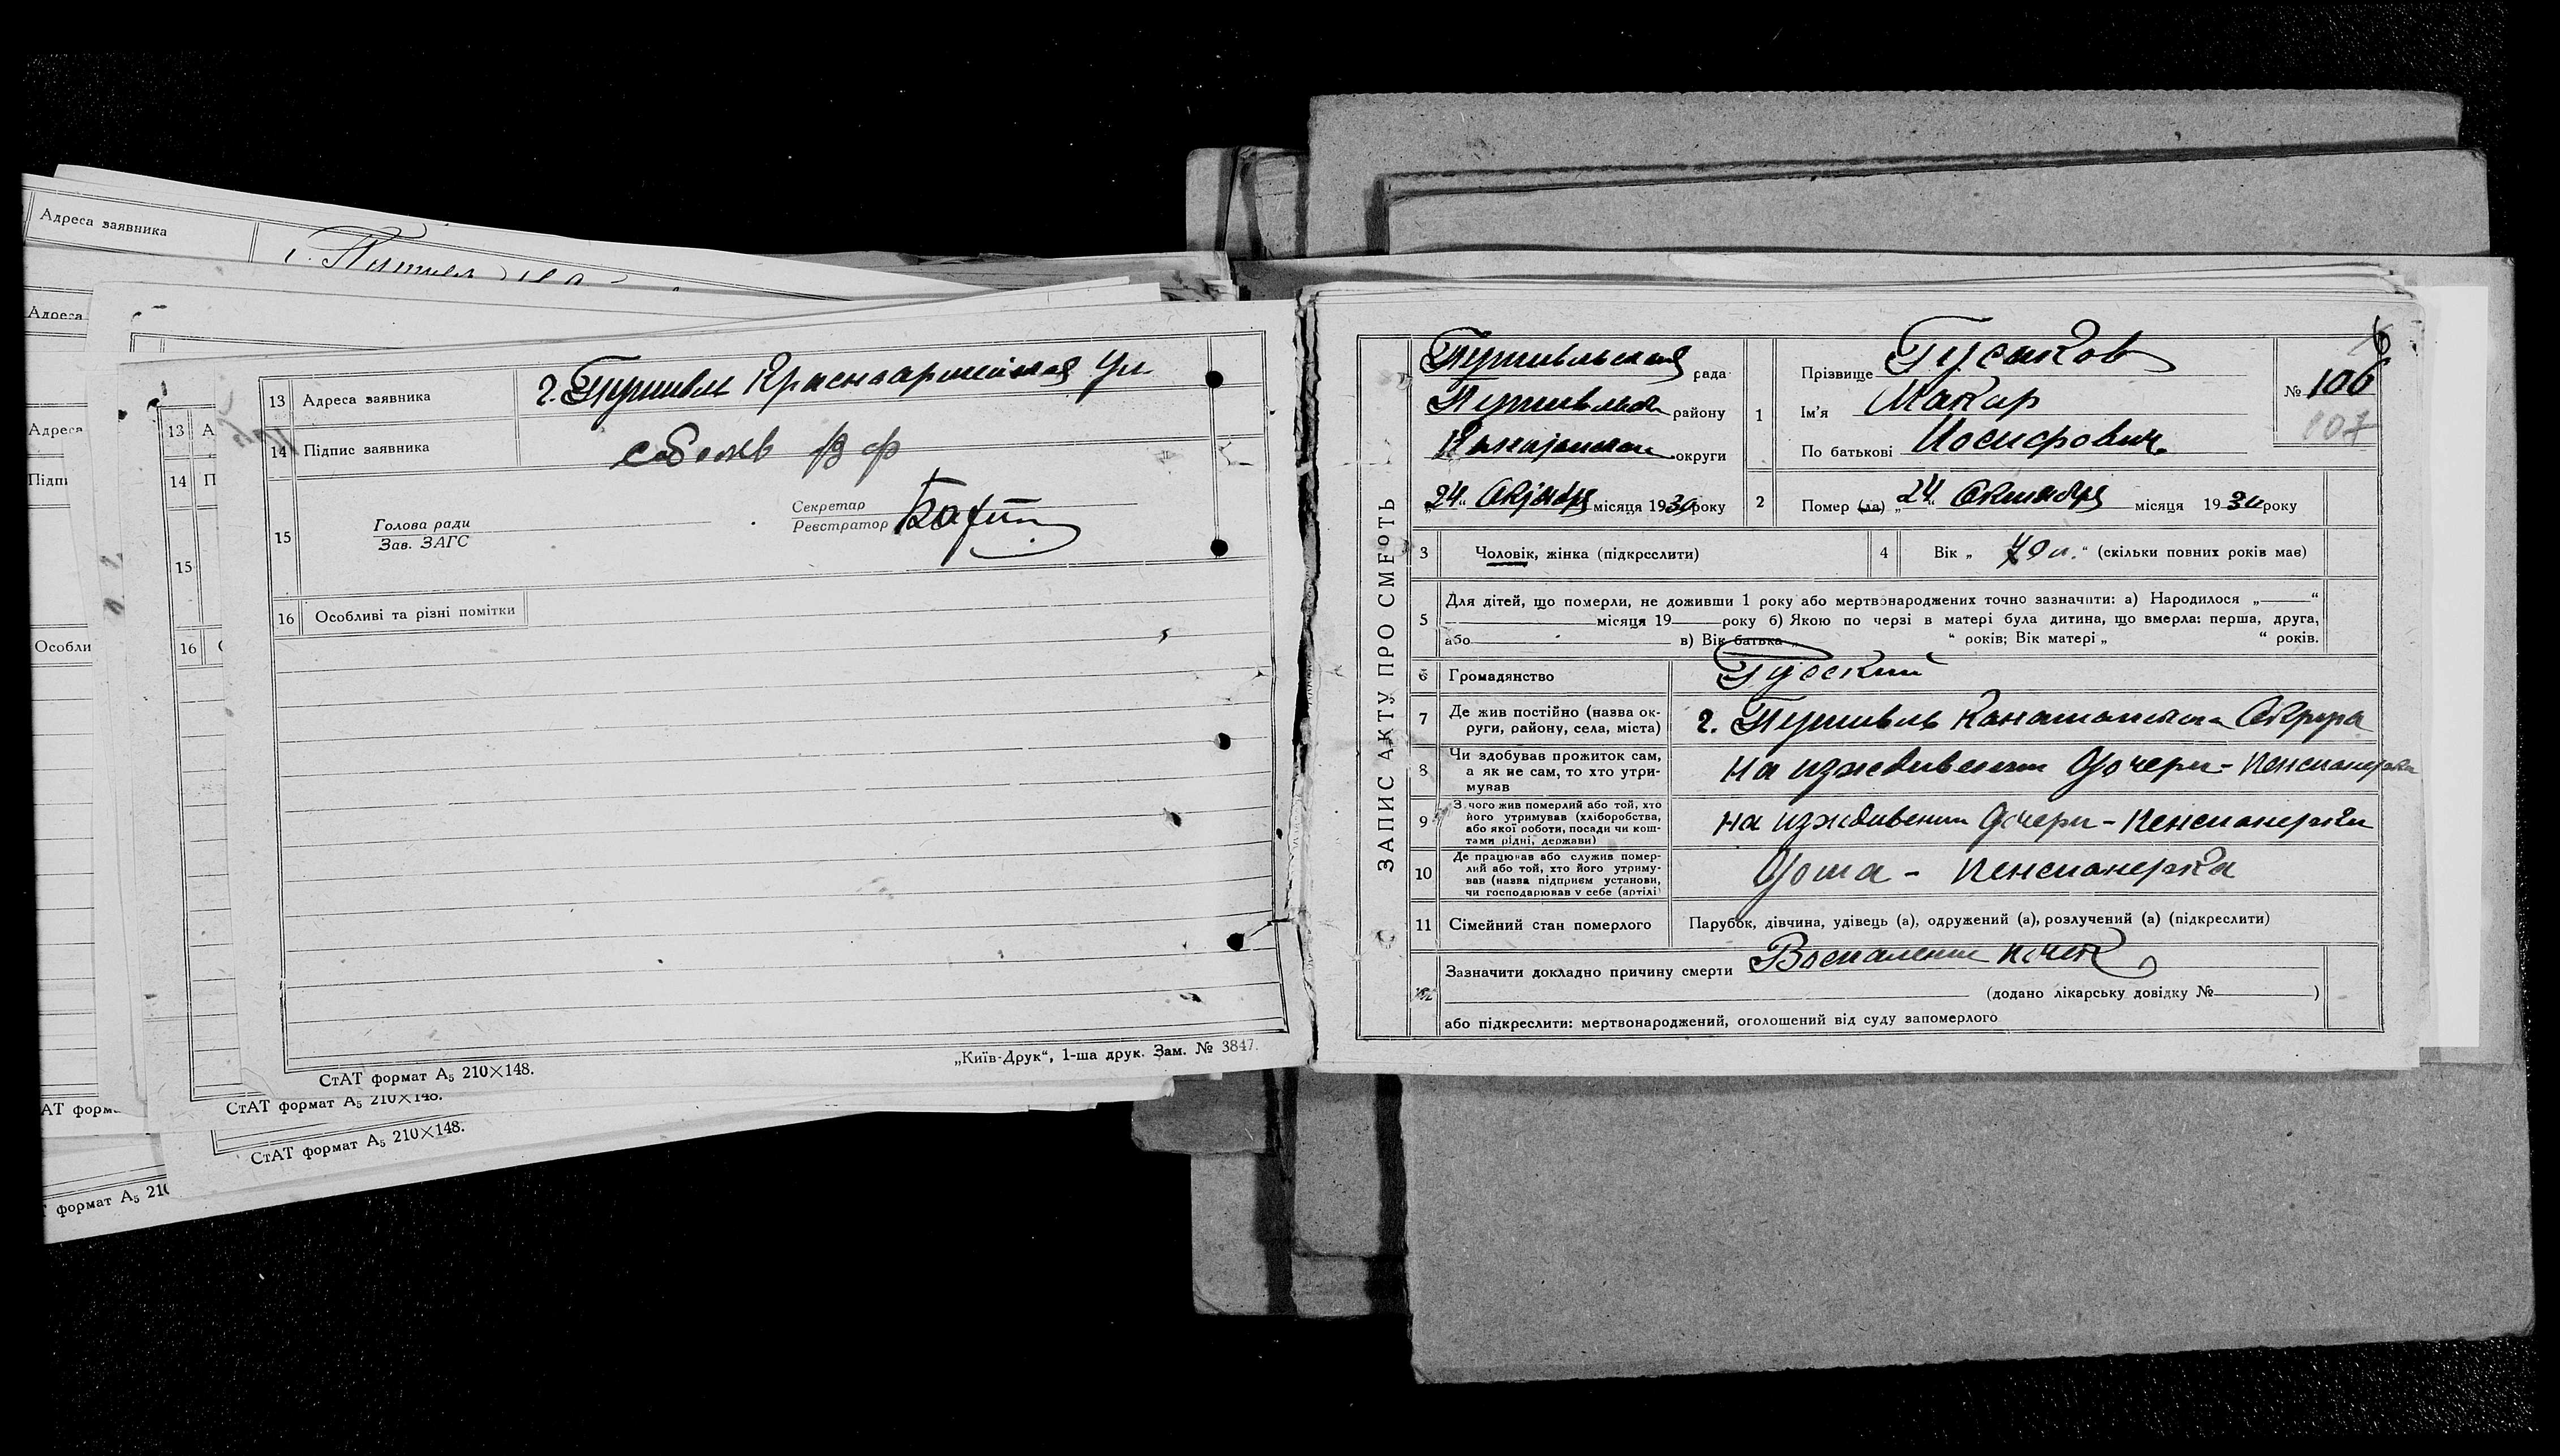 Адреса заявника
Адреса
Адреса
Підпи
Особли
13 А
14 П
15
16
13 Адреса заявника г. Путивль Красноармейская ул
14 Підпис заявника
15 Голова ради
Зав. ЗАГС
Секретар
Реєстратор
16 Особливі та різні помітки
СтАТ формат А5 210×148.
„Київ-Друк“, 1-ша друк. Зам. № 3847.
СтАТ формат А5 210×148.
СтАТ формат А5 210×148.
формат А5 21
ЗАПИС АКТУ ПРО СМЕРТЬ
Путивльская рада
Путивльск району
округи
„24“ Октября місяця 1930 року
1 Прізвище Гусаков
Ім'я Макар
По батькові Иосифович
№ 106
107
2 Помер (ла) „24“ Октября місяця 1930 року
3 Чоловік, жінка (підкреслити)
4 Вік „70 л.“ (скільки повних років має)
5 Для дітей, що померли, не доживши 1 року або мертвонароджених точно зазначити: а) Народилося „ “
місяця 19 року б) Якою по черзі в матері була дитина, що вмерла: перша, друга,
або в) Вік батька „ “ років; Вік матері „ “ років.
6 Громадянство Русский
7 Де жив постійно (назва ок-
руги, району, села, міста) г. Путивль Конотопская Округа
8 Чи здобував прожиток сам,
а як не сам, то хто утри-
мував на иждивении дочери - пенсионерки
9 З чого жив померлий або той, хто
його утримував (хліборобства,
або якої роботи, посади чи кош-
тами рідні, держави) на иждивении дочери - пенсионерки
10 Де працював або служив помер-
лий або той, хто його утриму-
вав (назва підприєм установи,
чи господарював у себе (артілі) пенсионерка
11 Сімейний стан померлого Парубок, дівчина, удівець (а), одружений (а), розлучений (а) (підкреслити)
12 Зазначити докладно причину смерти Воспаление почек
(додано лікарську довідку № )
або підкреслити: мертвонароджений, оголошений від суду запомерлого